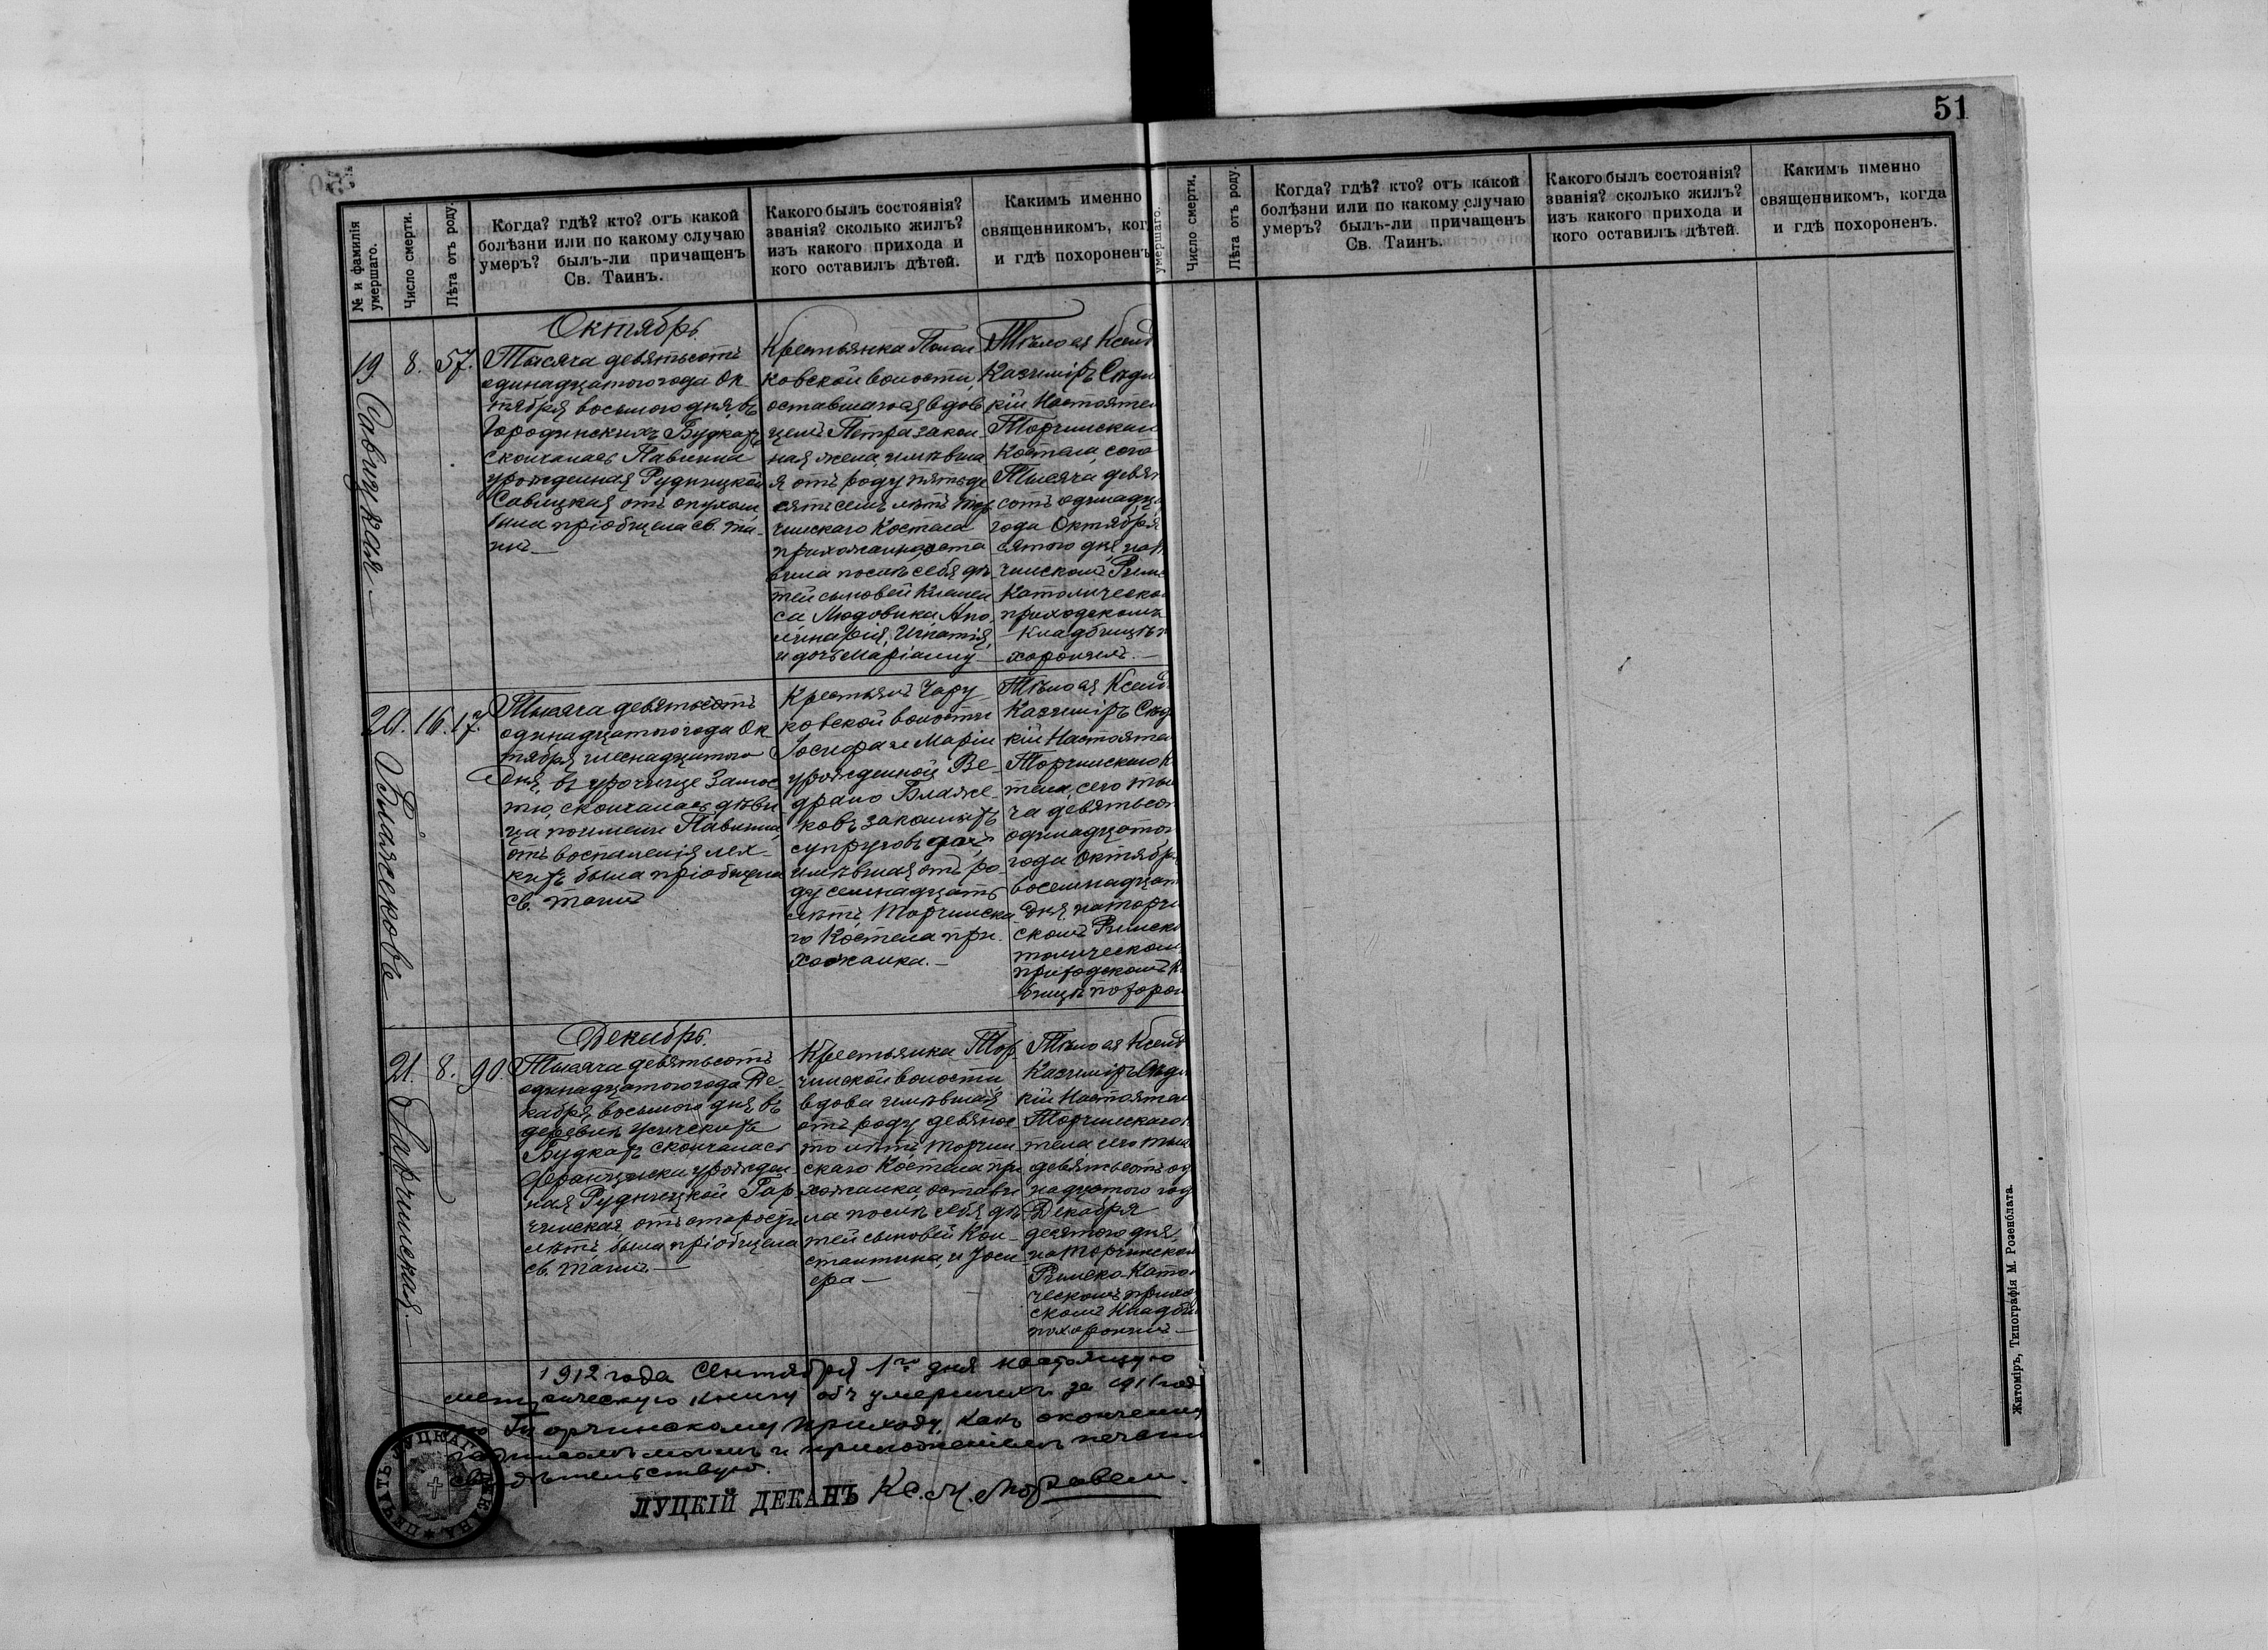 51
№ и фамилія
умершаго.
Число смерти.
Лѣта отъ роду.
Когда? гдѣ? кто? отъ какой
болѣзни или по какому случаю
умеръ? былъ-ли причащенъ
Св. Таинъ.
Какого былъ состоянія?
званія? сколько жилъ?
изъ какого прихода и
кого оставилъ дѣтей.
Какимъ именно
священникомъ, ког
и гдѣ похороненъ
Октябрь.
19 Савицкая
8.
57.
Тысяча девятьсотъ
одинадцатого года Ок-
тября восьмого дня, въ
Городинскихъ Будкахъ
скончалась Павлина
урожденная Рудницкой
Савицкая отъ опухоли
была пріобщена св. та-
инъ
Крестьянка
ковской волости,
оставшагося вдов
цемъ Петра закон
ная жена, имѣвша
я отъ роду пятьде
сятъ семь лѣтъ тор
чинскаго Костела
прихожанка, оста
вила послѣ себя дѣ
тей сыновей Клемен
са Людовика Апо
линарія, Игнатія,
и дочь Маріанну
Тѣло ея Ксенд
Казиміръ
кій Настоятел
Торчинскаго
Костела, сего
Тысяча девят
сотъ одинадца
года Октября
сятого дня, на
чинскомъ Римс
Католическо
приходскомъ
кладбищѣ п
хоронилъ.
20. Блажекова
16.
17.
Тысяча девятьсотъ
одинадцатого года Ок-
тября шеснадцатого
дня, въ урочище Замос
тю, скончалась дѣви
ца поимени Павлина,
отъ воспаленія лех-
кихъ была пріобщена
св. таинъ
Крестьянъ Чару
ковской волости
Іосифа и Маріи
урожденной Ве-
драно Блаже-
ковъ законныхъ
супруговъ дочь
имѣвшая отъ ро-
ду семнадцать
лѣтъ Торчинска
го Костела при-
хожанка.
Тѣло ея Ксенд
Казиміръ
кій Настоятел
Торчинскаго К
тела, сего тыс
ча девятьсот
одинадцатог
года Октября
восемнадцат
дня, на торчи
скомъ Римско
толическом
приходскомъ к
бищѣ похорон
Декабрь.
21. Гарчинская.
8.
90.
Тысяча девятьсотъ
одинадцатого года Де-
кабря восьмого дня, въ
деревнѣ Усическихъ
Будкахъ скончалась
Францишка урожден
ная Рудницкой Гар
чинская отъ старости
лѣтъ была пріобщена
св. таинъ
Крестьянка Тор
чинской волости
вдова имѣвшая
отъ роду девянос
то лѣтъ Торчин
скаго Костела при
хожанка, остави
ла послѣ себя дѣ
тей сыновей Кон-
стантина, и Іоси
фа
Тѣло ея Ксенд
Казиміръ
кій Настоятел
Торчинскаго К
тела сего тыс
девятьсотъ од
надцатого год
Декабря
десятого дня,
на Торчинском
Римско-Като
ческомъ прихо
скомъ Кладби
похоронилъ
1912 года Сентября 1го дня настоящую
метрическую книгу объ умершихъ за 1911 год
по Торчинскому приходу, какъ окончен
подписомъ моимъ и приложеніемъ печати
свидѣтельствую.
ЛУЦКІЙ ДЕКАНЪ Кс.
ПЕЧАТЬ ЛУЦКАГО ДЕКАНА
умершаго.
Число смерти.
Лѣта отъ роду.
Когда? гдѣ? кто? отъ какой
болѣзни или по какому случаю
умеръ? былъ-ли причащенъ
Св. Таинъ.
Какого былъ состоянія?
званія? сколько жилъ?
изъ какого прихода и
кого оставилъ дѣтей.
Какимъ именно
священникомъ, когда
и гдѣ похороненъ.
Житоміръ, Типографія М. Розенблата.